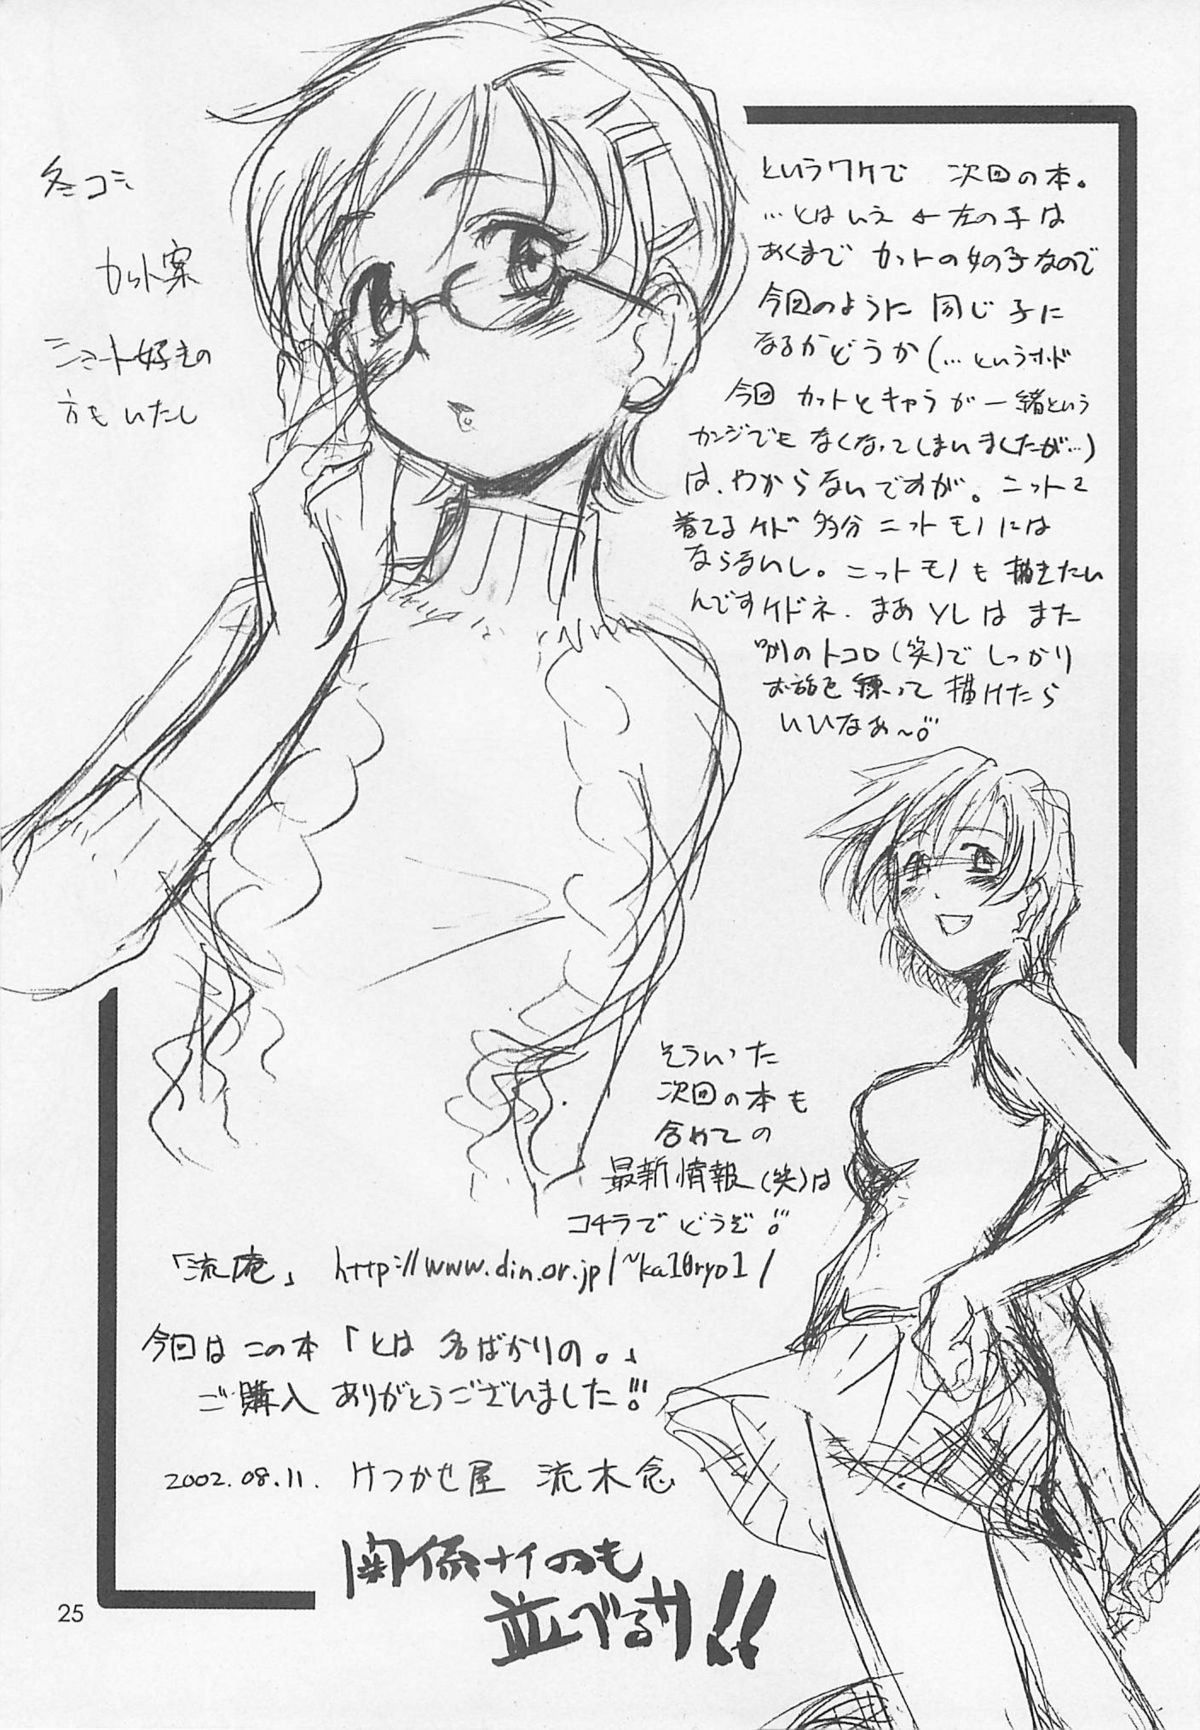 冬コミ
カット案
ショート好きの
方もいたし
というワケで 次回の本。
…とはいえ ←左の子は
あくまで カットの女の子なので
今回のように 同じ子に
なるかどうか(…というか
今回 カットとキャラが一緒という
カンジでも なくなってしまいましたが…)
は、わからないですが。ニット
着てるケド 多分 ニットモノには
ならないし。ニットモノも 描きたい
んですケドネ、まあソレはまた
別のトコロ(笑)でしっかり
お話を練って 描けたら
いいなぁ〜。
そういった
次回の本も
含めての
最新情報(笑)は
コチラで どうぞ!
「流庵」 http://www.din.or.jp/~ka10ryo1/
今回は この本「とは 名ばかりの。」
ご購入 ありがとうございました!!
2002.08.11. けつかせ屋 流木念
関係ナイのも
並べるサ!!
25